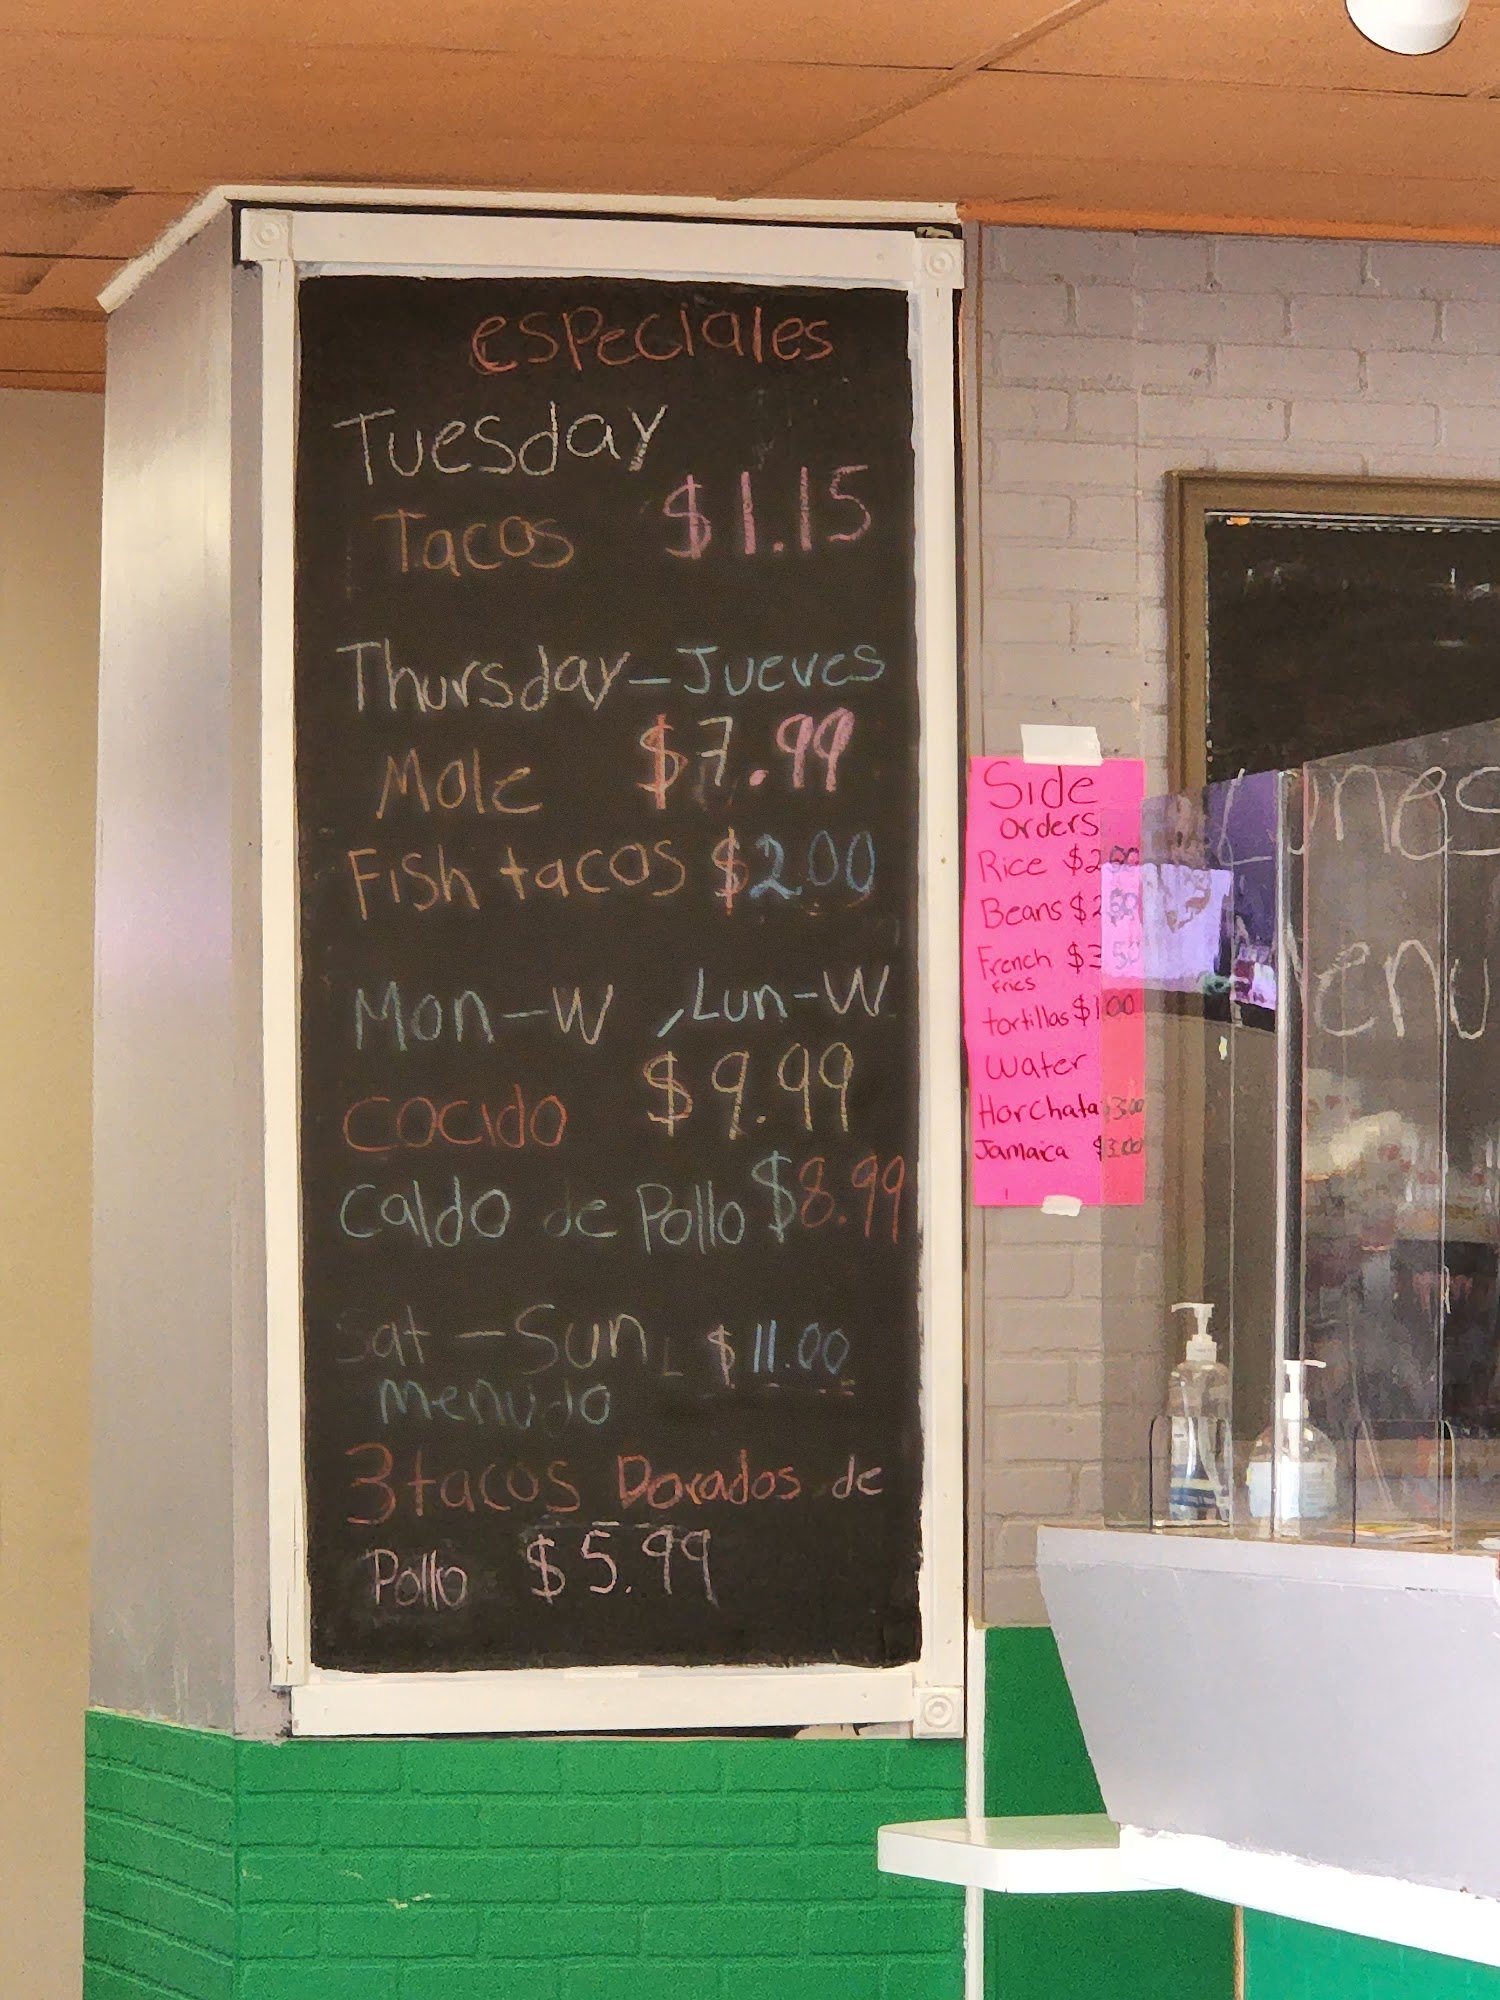 especiales
Tuesday
Tacos $1.15
Thursday - Jueves
Mole $7.99
Fish tacos $2.00
Mon-W, Lun-W
Cocido $9.99
Caldo de Pollo $8.99
Sat - Sun L $11.00
menudo
3 tacos Dorados de
Pollo $5.99
Side
orders
Rice $2.50
Beans $2.50
French $3.50
fries
tortillas $1.00
Water
Horchata $3.00
Jamaica $3.00